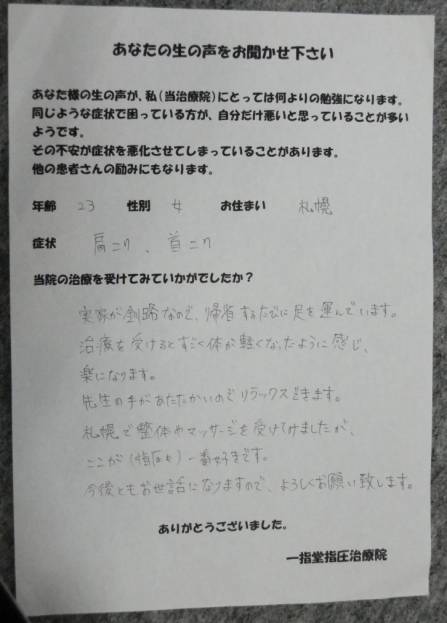 あなたの生の声をお聞かせ下さい
あなた様の生の声が、私（当治療院）にとっては何よりの勉強になります。
同じような症状で困っている方が、自分だけ悪いと思っていることが多い
ようです。
その不安が症状を悪化させてしまっていることがあります。
他の患者さんの励みにもなります。
年齢 23 性別 女 お住まい 札幌
症状 肩こり、首こり
当院の治療を受けてみていかがでしたか？
実家が釧路なので、帰省するたびに足を運んでいます。
治療を受けるとすごく体が軽くなったように感じ、
楽になります。
先生の手があたたかいのでリラックスできます。
札幌で整体やマッサージを受けてみましたが、
ここが（指圧が）一番好きです。
今後ともお世話になりますので、よろしくお願い致します。
ありがとうございました。
一指堂指圧治療院